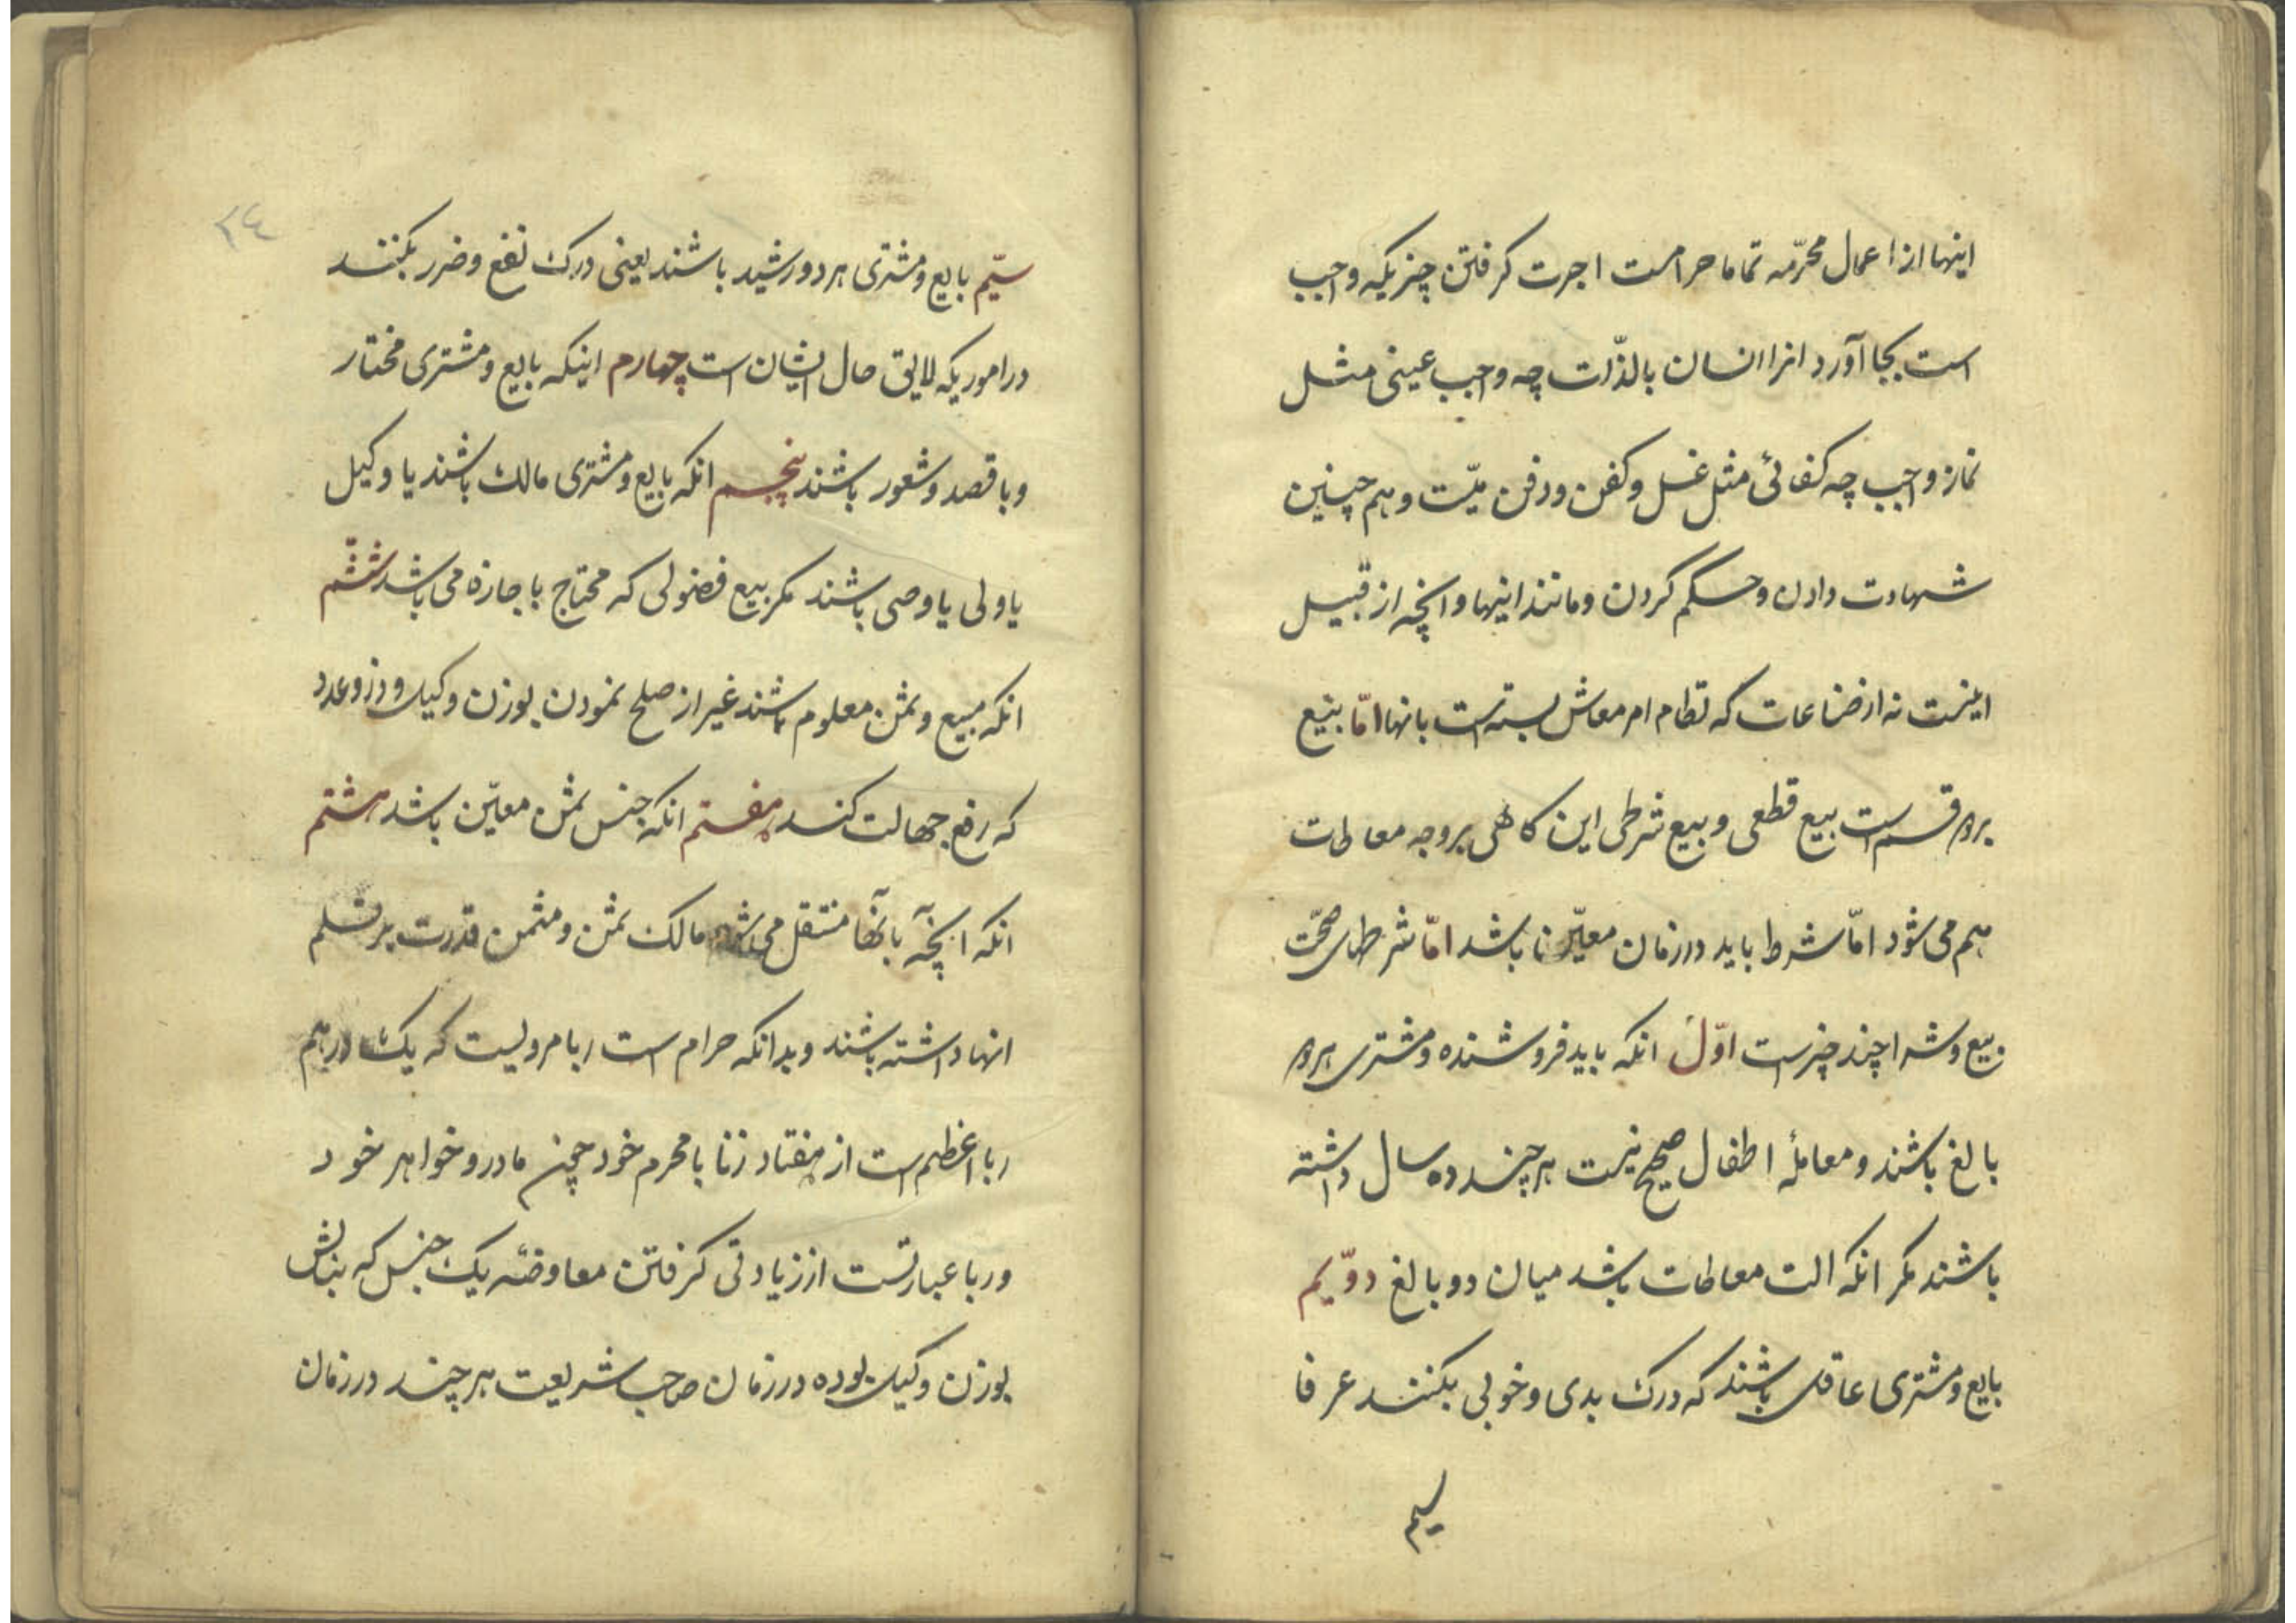 اینها از اعمال محرّمه تماما حرامست اجرت کرفتن چیزیکه واجب
است بجا آورد انرا انسان بالذّات چه واجب عینی مثل
نماز واجب چه کفائی مثل غسل و کفن و دفن میّت و هم چنین
شهادت دادن و حکم کردن و مانند اینها و انچه از قبیل
اینست نه از ضاعات که نظام امر معاش بسته است بانها امّا بیع
بردو قسم است بیع قطعی و بیع شرطی این کاهی بر وجه معاطات
هم می شود امّا شرط باید در زمان معیّن باشد امّا شرطهای صحّت
بیع و شرا چند چیز است اوّل انکه باید فروشنده و مشتری هردو
بالغ باشند و معاملهٔ اطفال صحیح نیست هرچند ده سال داشته
باشند مکر انکه الت معاطات باشد میان دو بالغ دوّیم
بایع و مشتری عاقل باشند که درک بدی و خوبی بکنند عرفا
سیم
۲٤
سیّم بایع و مشتری هر دو رشید باشند یعنی درک نفع و ضرر بکنند
در اموریکه لایق حال ایشان است چهارم اینکه بایع و مشتری مختار
و با قصد و شعور باشند پنجم انکه بایع و مشتری مالک باشند یا وکیل
یا ولی یا وصی باشند مکر بیع فضولی که محتاج باجازه می باشد ششّم
انکه مبیع و ثمن معلوم باشند غیر از صلح نمودن بوزن و کیل و ذرع و عدد
که رفع جهالت کند هفتم انکه جنس ثمن معیّن باشد هشتم
انکه انچه بآنها منتقل می شود مالک ثمن و مثمن قدرت بر تسلم
انها داشته باشند و بدانکه حرام است ربا مرویست که یک درهم
ربا اعظم است از هفتاد زنا با محرم خود چون مادر و خواهر خود
و ربا عبارتست از زیادتی کرفتن معاوضه یک جنس که بنایش
بوزن و کیل بوده در زمان صاحب شریعت هرچند در زمان